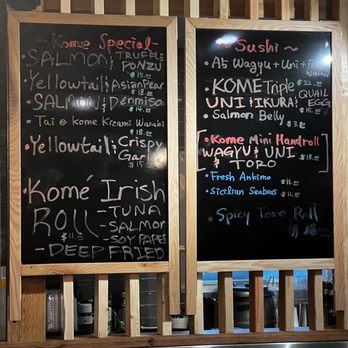 ~ Kome Special ~
SALMON & TRUFFLE PONZU
$15.00
Yellowtail & Asian Pear
$18.00
SALMON & Denniso
$14.00
Tai @ kome Kizami Wasabi
Yellowtail & Crispy Garlic
$15.00
Komé Irish
ROLL - TUNA
- SALMON
- SOY PAPER
- DEEP FRIED
~ Sushi ~
A5 Wagyu + Uni +
KOME Triple
UNI & IKURA & QUAIL EGG
Salmon Belly
Kome Mini Handroll
WAGYU & UNI
& TORO
Fresh Ankimo
Sicilian Seabass
Spicy Toro Roll